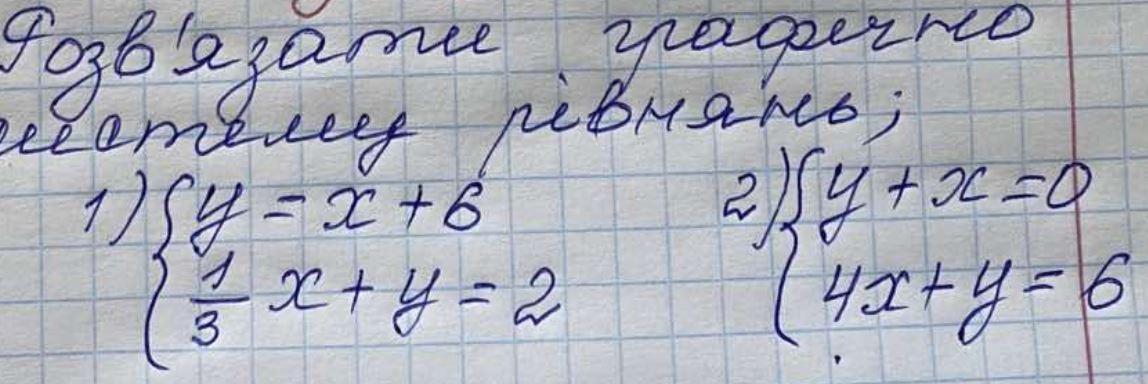 Розв'язати графічно
систему рівнянь;
1) { y = x + 6    2) { y + x = 0
{ 1/3 x + y = 2    { 4x + y = 6